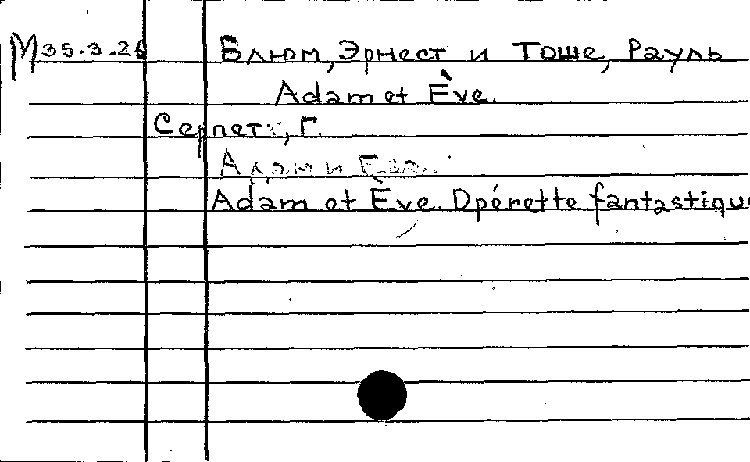 М35.3.26 Блюм, Эрнест и Тоше, Рауль
Adam et Ève.
Серпетт, Г.
Адам и Ева.
Adam et Ève. Opérette fantastique